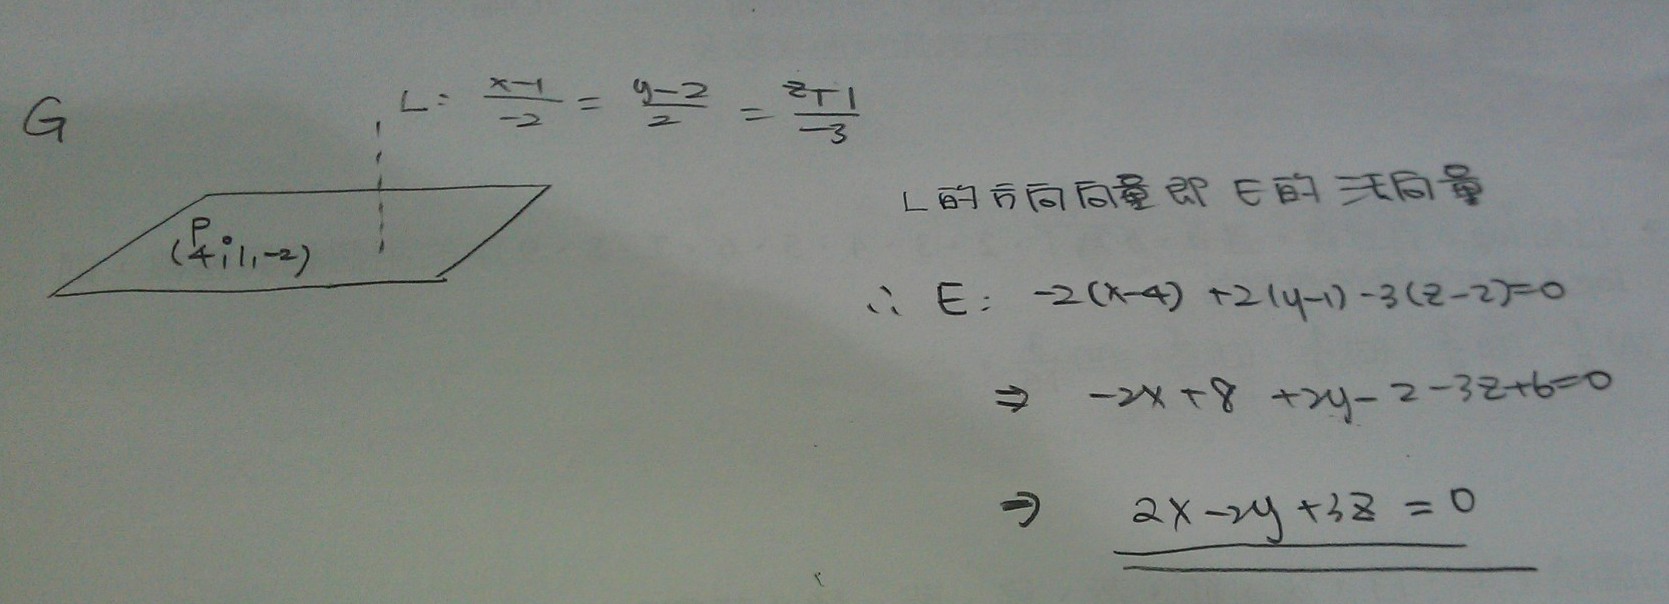 G
L: (x-1)/-2 = (y-2)/2 = (z+1)/-3
P
(4,1,-2)
L的方向向量即E的法向量
∴ E: -2(x-4) +2(y-1) -3(z-2)=0
⇒ -2x+8 +2y-2-3z+6=0
⇒ 2x-2y+3z=0